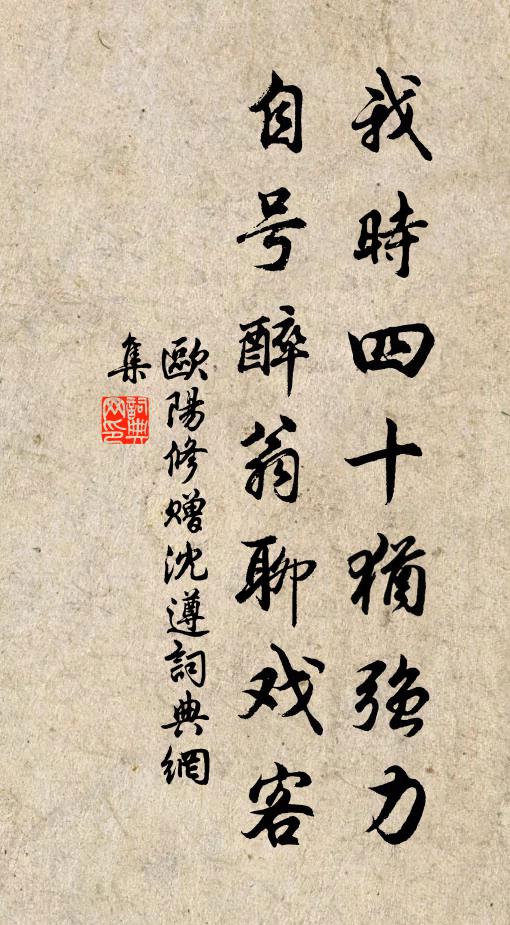 我時四十猶強力
自号醉翁聊戏客
歐陽修贈沈遵詞典網
集
詞典
网印